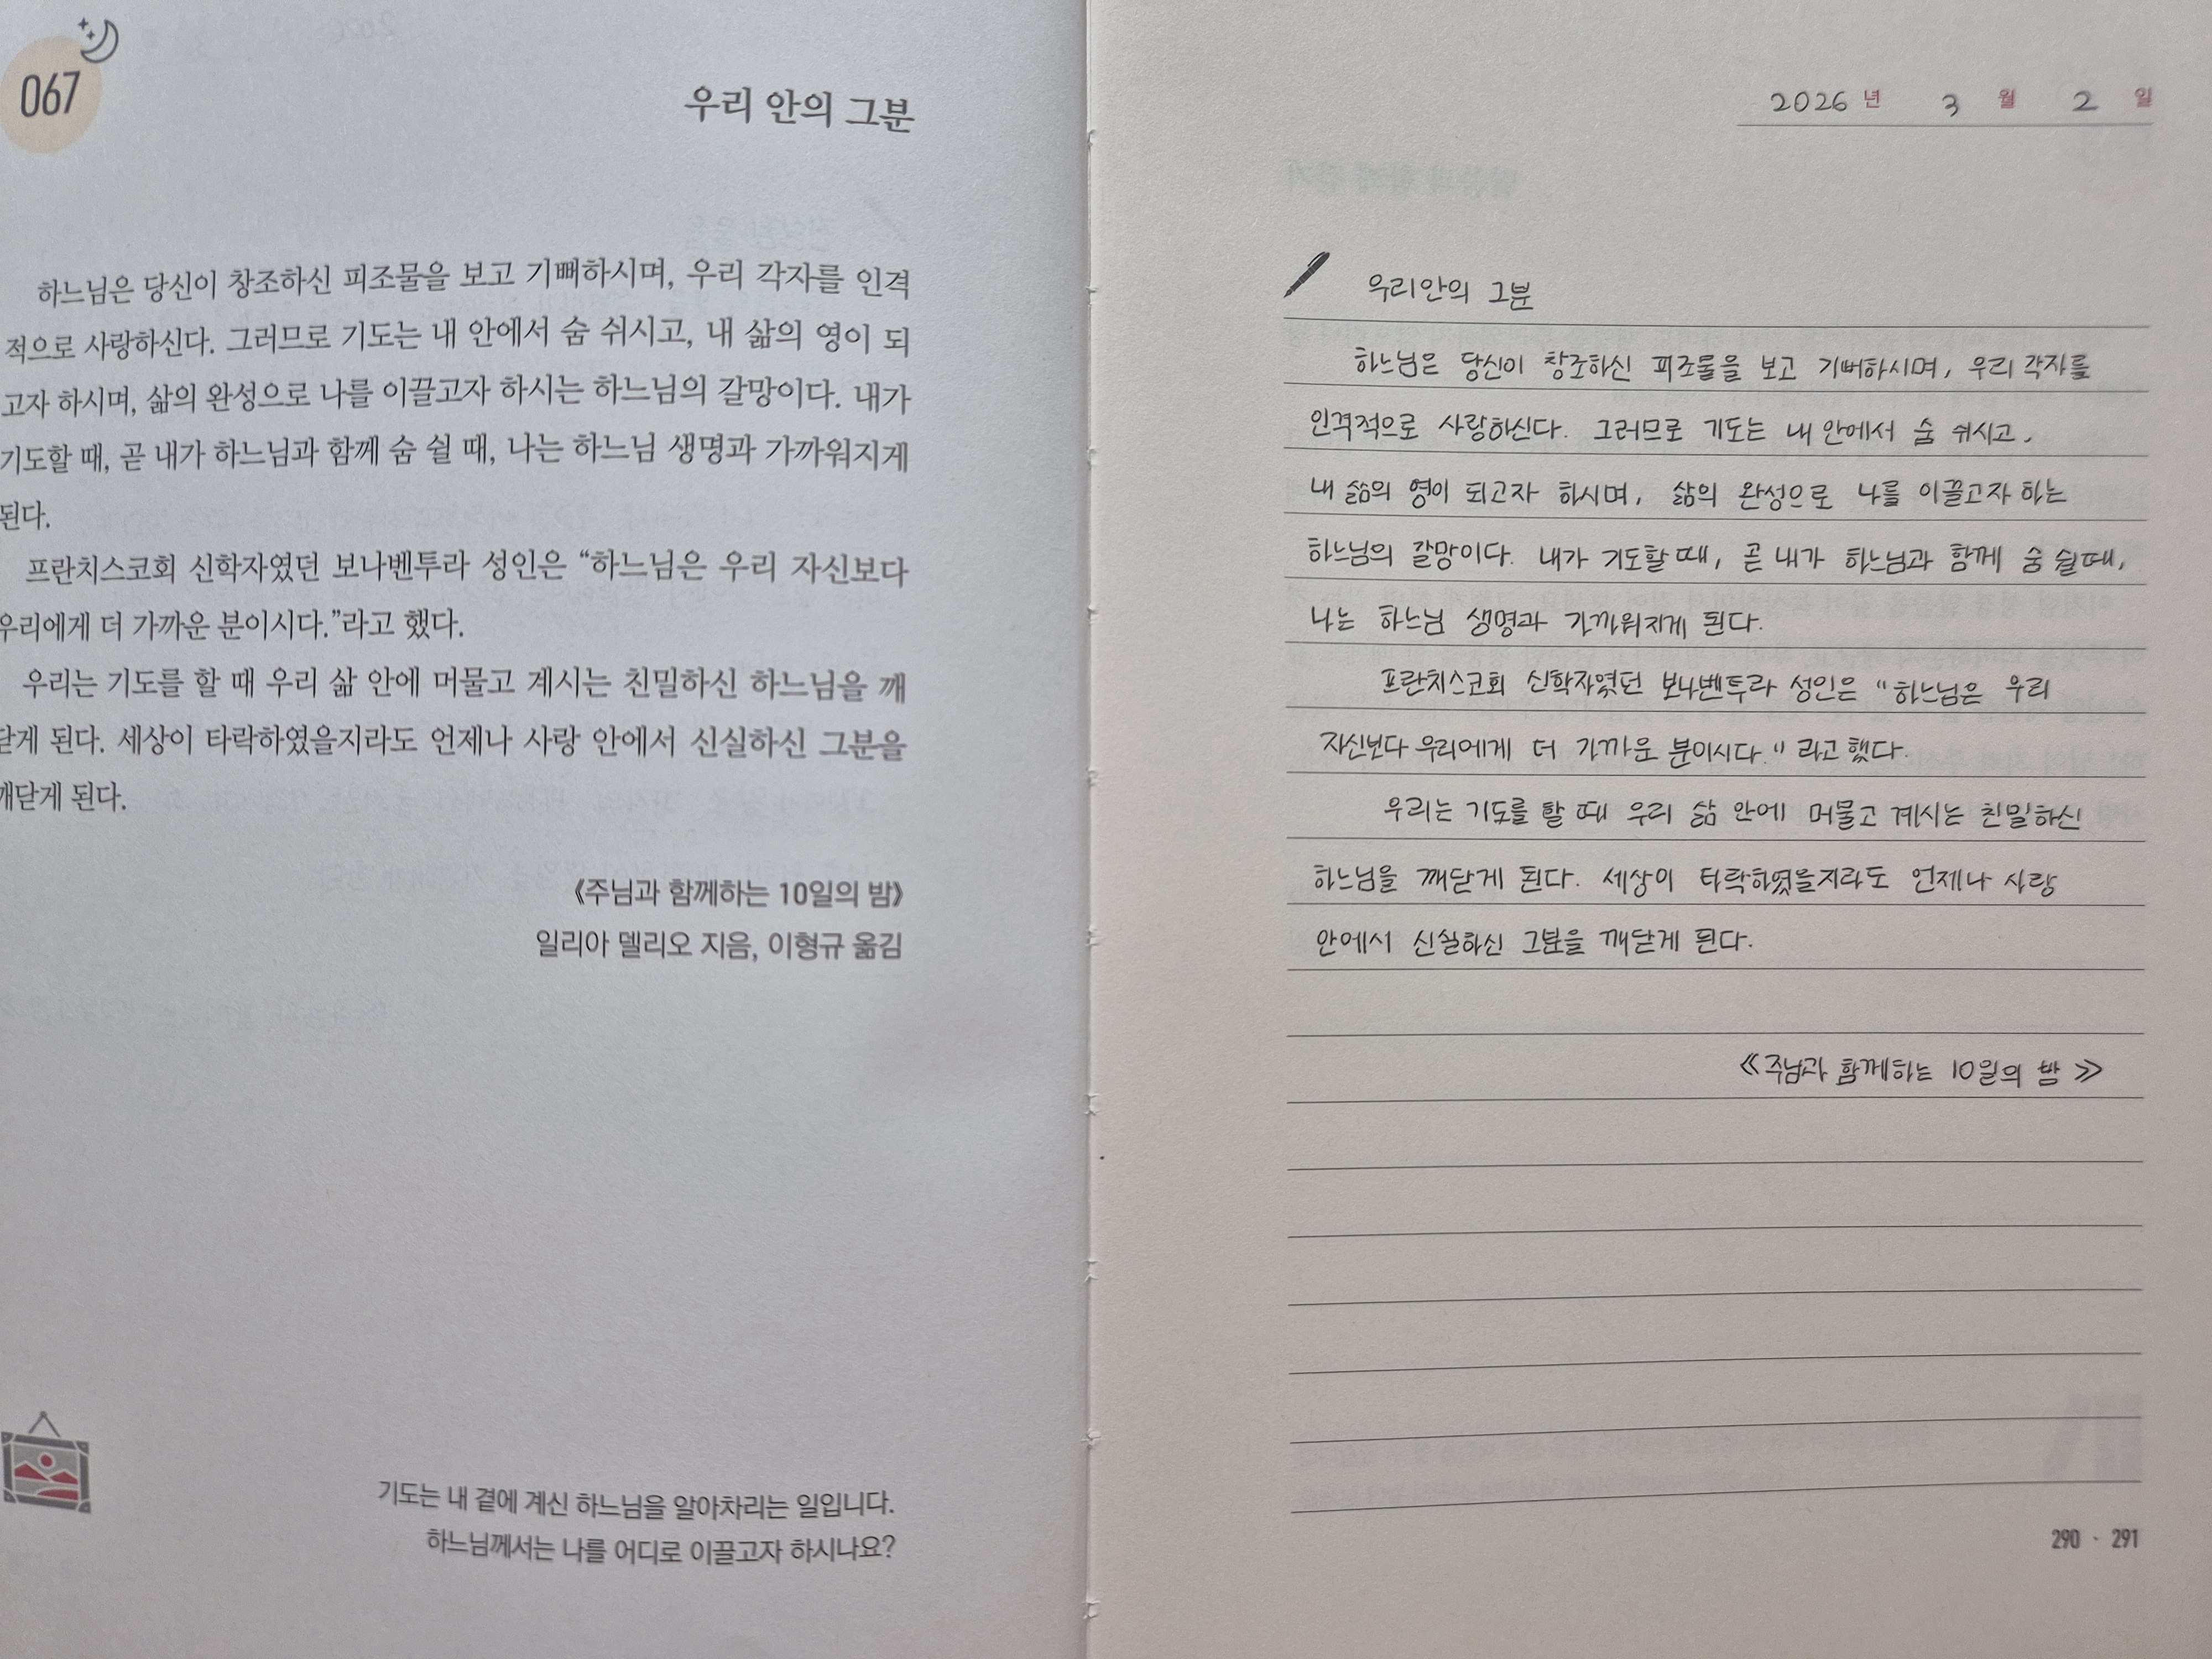 067
우리 안의 그분
하느님은 당신이 창조하신 피조물을 보고 기뻐하시며, 우리 각자를 인격
적으로 사랑하신다. 그러므로 기도는 내 안에서 숨 쉬시고, 내 삶의 영이 되
고자 하시며, 삶의 완성으로 나를 이끌고자 하시는 하느님의 갈망이다. 내가
기도할 때, 곧 내가 하느님과 함께 숨 쉴 때, 나는 하느님 생명과 가까워지게
된다.
프란치스코회 신학자였던 보나벤투라 성인은 “하느님은 우리 자신보다
우리에게 더 가까운 분이시다.”라고 했다.
우리는 기도를 할 때 우리 삶 안에 머물고 계시는 친밀하신 하느님을 깨
닫게 된다. 세상이 타락하였을지라도 언제나 사랑 안에서 신실하신 그분을
깨닫게 된다.
《주님과 함께하는 10일의 밤》
일리아 델리오 지음, 이형규 옮김
기도는 내 곁에 계신 하느님을 알아차리는 일입니다.
하느님께서는 나를 어디로 이끌고자 하시나요?
2026 년 3 월 2 일
우리안의 그분
하느님은 당신이 창조하신 피조물을 보고 기뻐하시며, 우리 각자를
인격적으로 사랑하신다. 그러므로 기도는 내 안에서 숨 쉬시고,
내 삶의 영이 되고자 하시며, 삶의 완성으로 나를 이끌고자 하는
하느님의 갈망이다. 내가 기도할 때, 곧 내가 하느님과 함께 숨 쉴 때,
나는 하느님 생명과 가까워지게 된다.
프란치스코회 신학자였던 보나벤투라 성인은 "하느님은 우리
자신보다 우리에게 더 가까운 분이시다." 라고 했다.
우리는 기도를 할 때 우리 삶 안에 머물고 계시는 친밀하신
하느님을 깨닫게 된다. 세상이 타락하였을지라도 언제나 사랑
안에서 신실하신 그분을 깨닫게 된다.
《주님과 함께하는 10일의 밤》
290 · 291